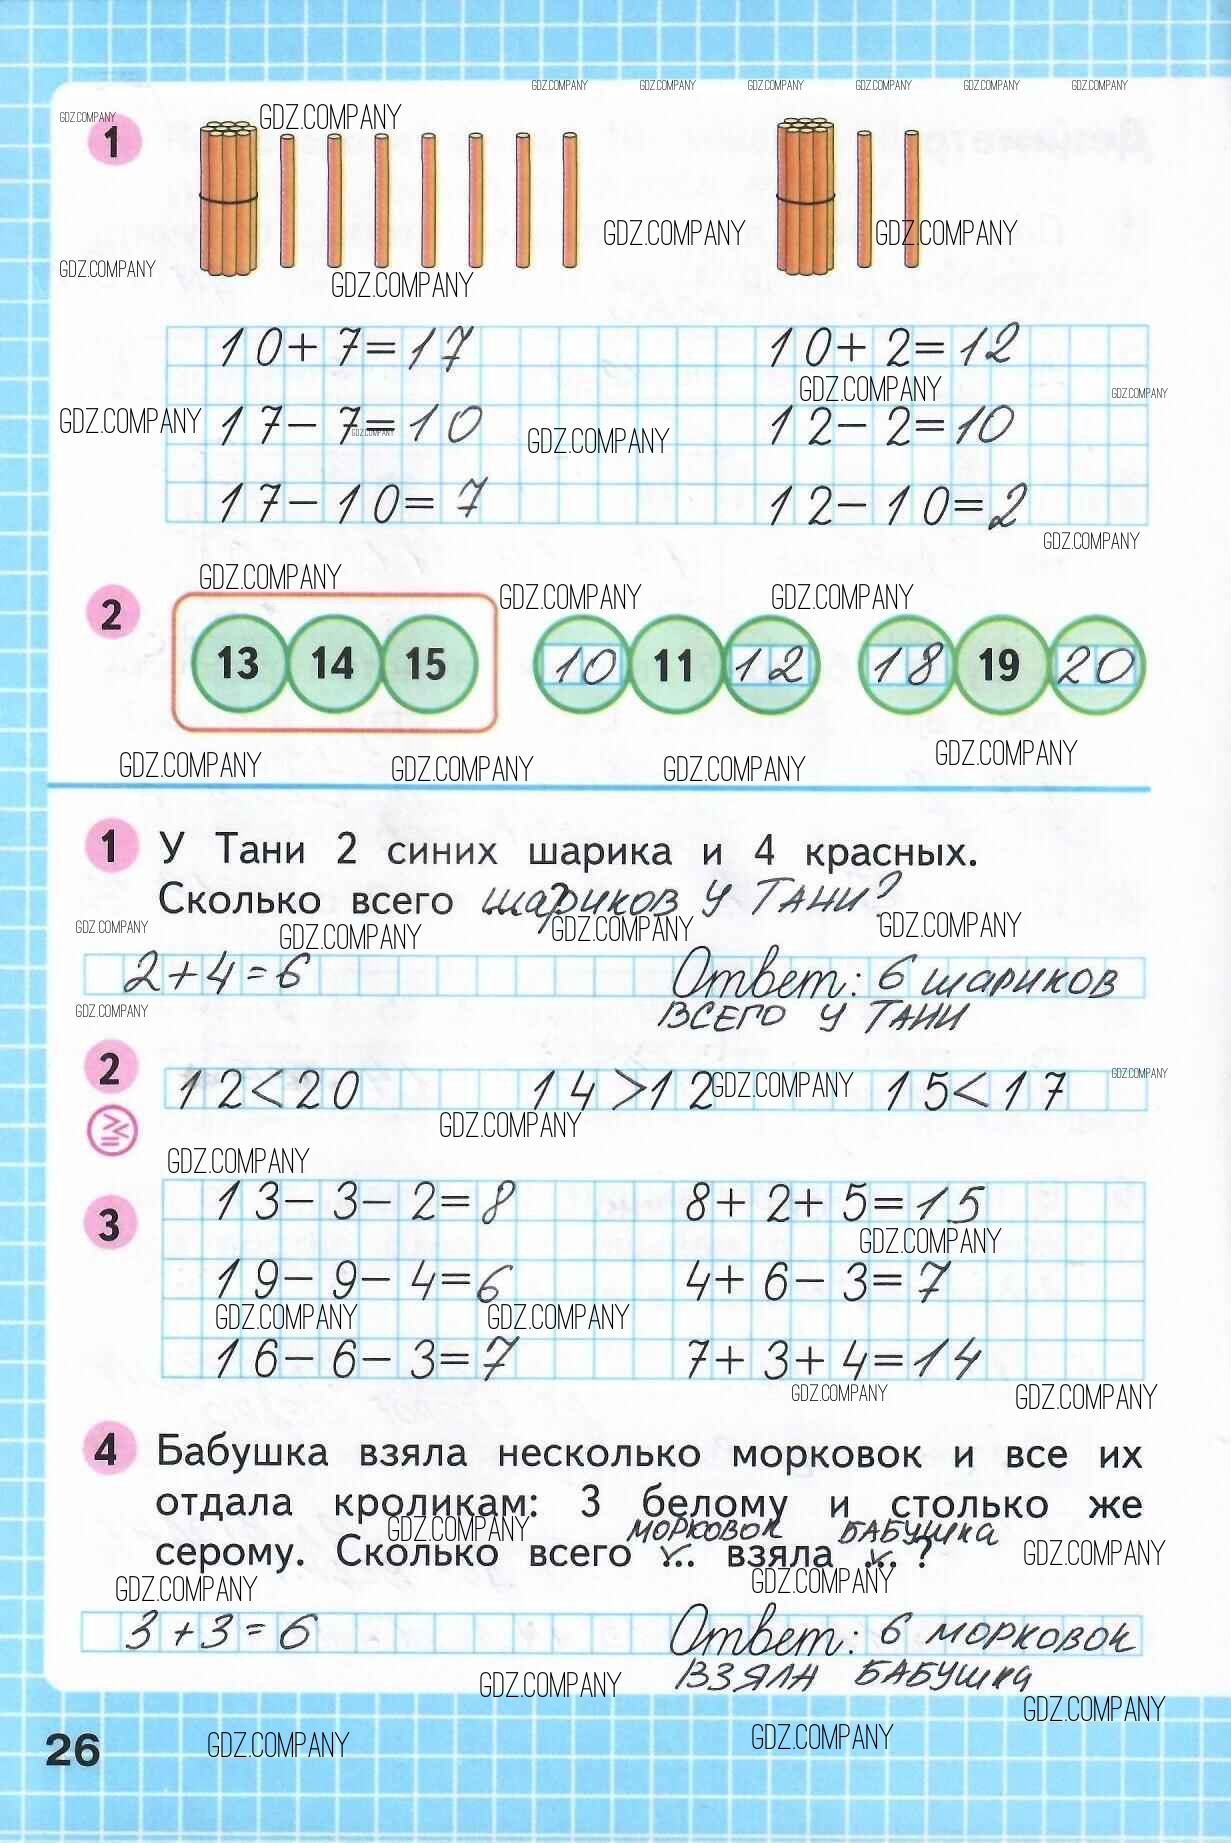 GDZ.COMPANY GDZ.COMPANY GDZ.COMPANY GDZ.COMPANY GDZ.COMPANY GDZ.COMPANY
GDZ.COMPANY GDZ.COMPANY
1
GDZ.COMPANY GDZ.COMPANY
GDZ.COMPANY GDZ.COMPANY
10+7=17 10+2=12
GDZ.COMPANY GDZ.COMPANY
17-7=10 12-2=10
GDZ.COMPANY GDZ.COMPANY GDZ.COMPANY
17-10=7 12-10=2
GDZ.COMPANY
GDZ.COMPANY GDZ.COMPANY GDZ.COMPANY
2 13 14 15 10 11 12 18 19 20
GDZ.COMPANY GDZ.COMPANY GDZ.COMPANY GDZ.COMPANY
1 У Тани 2 синих шарика и 4 красных.
Сколько всего ...? шариков у Тани?
GDZ.COMPANY GDZ.COMPANY GDZ.COMPANY GDZ.COMPANY
2+4=6 Ответ: 6 шариков
GDZ.COMPANY всего у Тани
2 12<20 14>12 15<17
GDZ.COMPANY GDZ.COMPANY
GDZ.COMPANY
GDZ.COMPANY
3 13-3-2=8 8+2+5=15
GDZ.COMPANY
19-9-4=6 4+6-3=7
GDZ.COMPANY GDZ.COMPANY
16-6-3=7 7+3+4=14
GDZ.COMPANY GDZ.COMPANY
4 Бабушка взяла несколько морковок и все их
отдала кроликам: 3 белому и столько же
GDZ.COMPANY морковок бабушка
серому. Сколько всего ... взяла ...?
GDZ.COMPANY GDZ.COMPANY GDZ.COMPANY
3+3=6 Ответ: 6 морковок
взяла бабушка
GDZ.COMPANY GDZ.COMPANY
26 GDZ.COMPANY GDZ.COMPANY